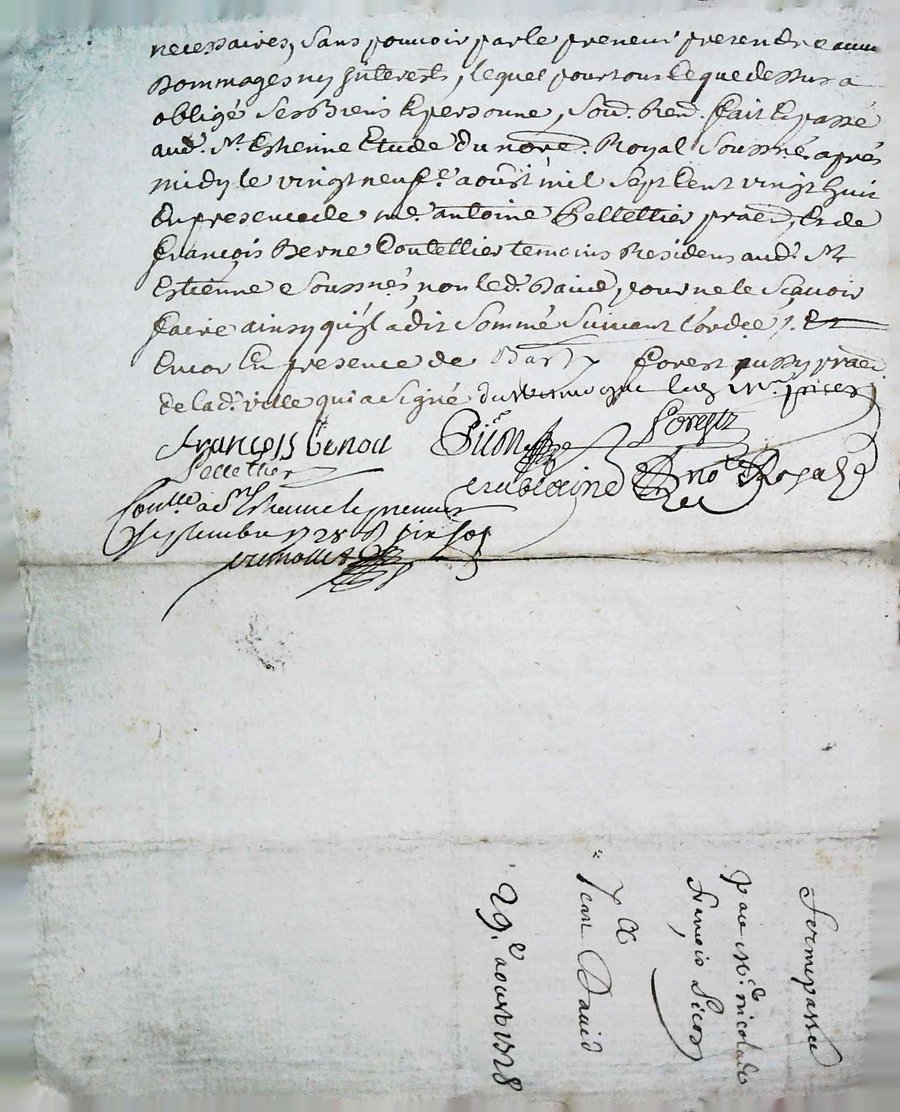 necessaires, sans pouvoir par le preneur pretendre aucun
Dommages ny Interests, lequel pour tout ce que dessus a
obligé ses Biens Et personne, soub. Ren. fait Et passé
aud. St. Estienne Etude du no.re Royal soussné. aprés
midy le vingt neuf.e aoust mil sept Cent vingt huit
En presence de me. antoine Pellettier prae. Et de
françois Benne Coutellier temoins Residens aud. St
Estienne e soussnés, non led. David, pour ne le scavoir
faire ainsy qu'jl a dit sommé suivant l'ord.ce
Encor En presence de Forest aussy prae.
de lad. ville qui a signé
françois benoit Sicon Forest
Pellettier
no.re Royal
Con.lle a St Estienne le premier
septembre 1728 R six sol

ferme passée
par sr. nicolas
françois Sicon
a
Jean David
29.e aoust 1728